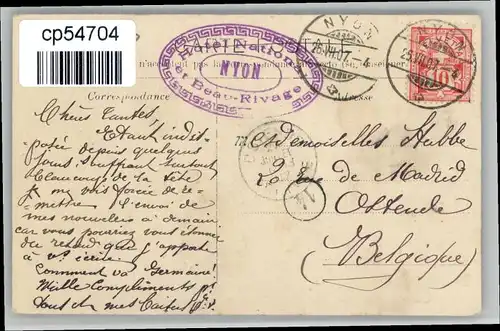 cp54704
CARTE
Hôtel National
NYON
et Beau-Rivage
NYON
25.VII.07. 4
NYON
25.VII.07. 4
10
Correspondance
Adresse
Chères tantes,
Etant indis-
posée depuis quelques
jours souffrant surtout
beaucoup de la tête
je me vois forcée de re-
mettre l'envoi de
mes nouvelles à demain
car vous pourriez vous étonner
du retard que j'apporte
à vs écrire.
Comment va Germaine!
Mille compliments pr
tous et mes
Mesdemoiselles Hubbe
Rue de Madrid
Ostende
(Belgique)